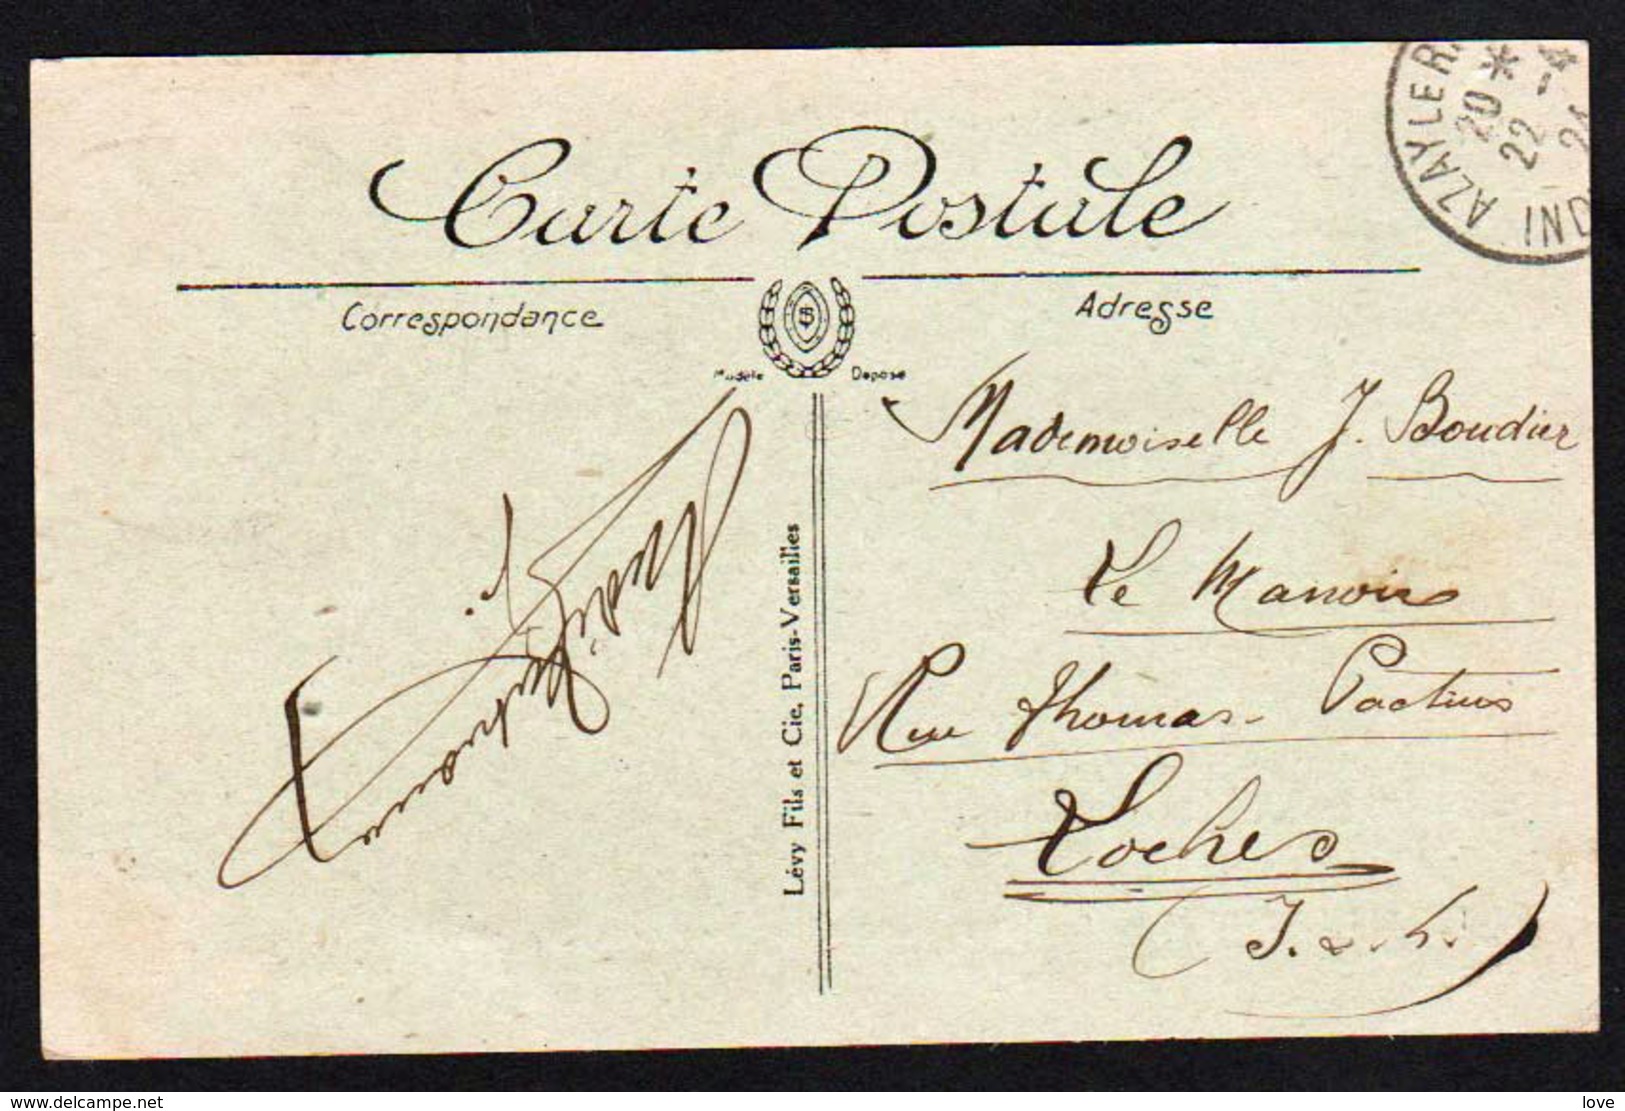 Carte Postale
Correspondance
Adresse
Modèle Déposé
AZAY LE R
20 *
22 -4
24
IND
Mademoiselle J. Boudier
Le Manoir
Rue Thomas Pactius
Loches
(I. & L.)
Lévy Fils et Cie, Paris-Versailles
delcampe.net
love_love